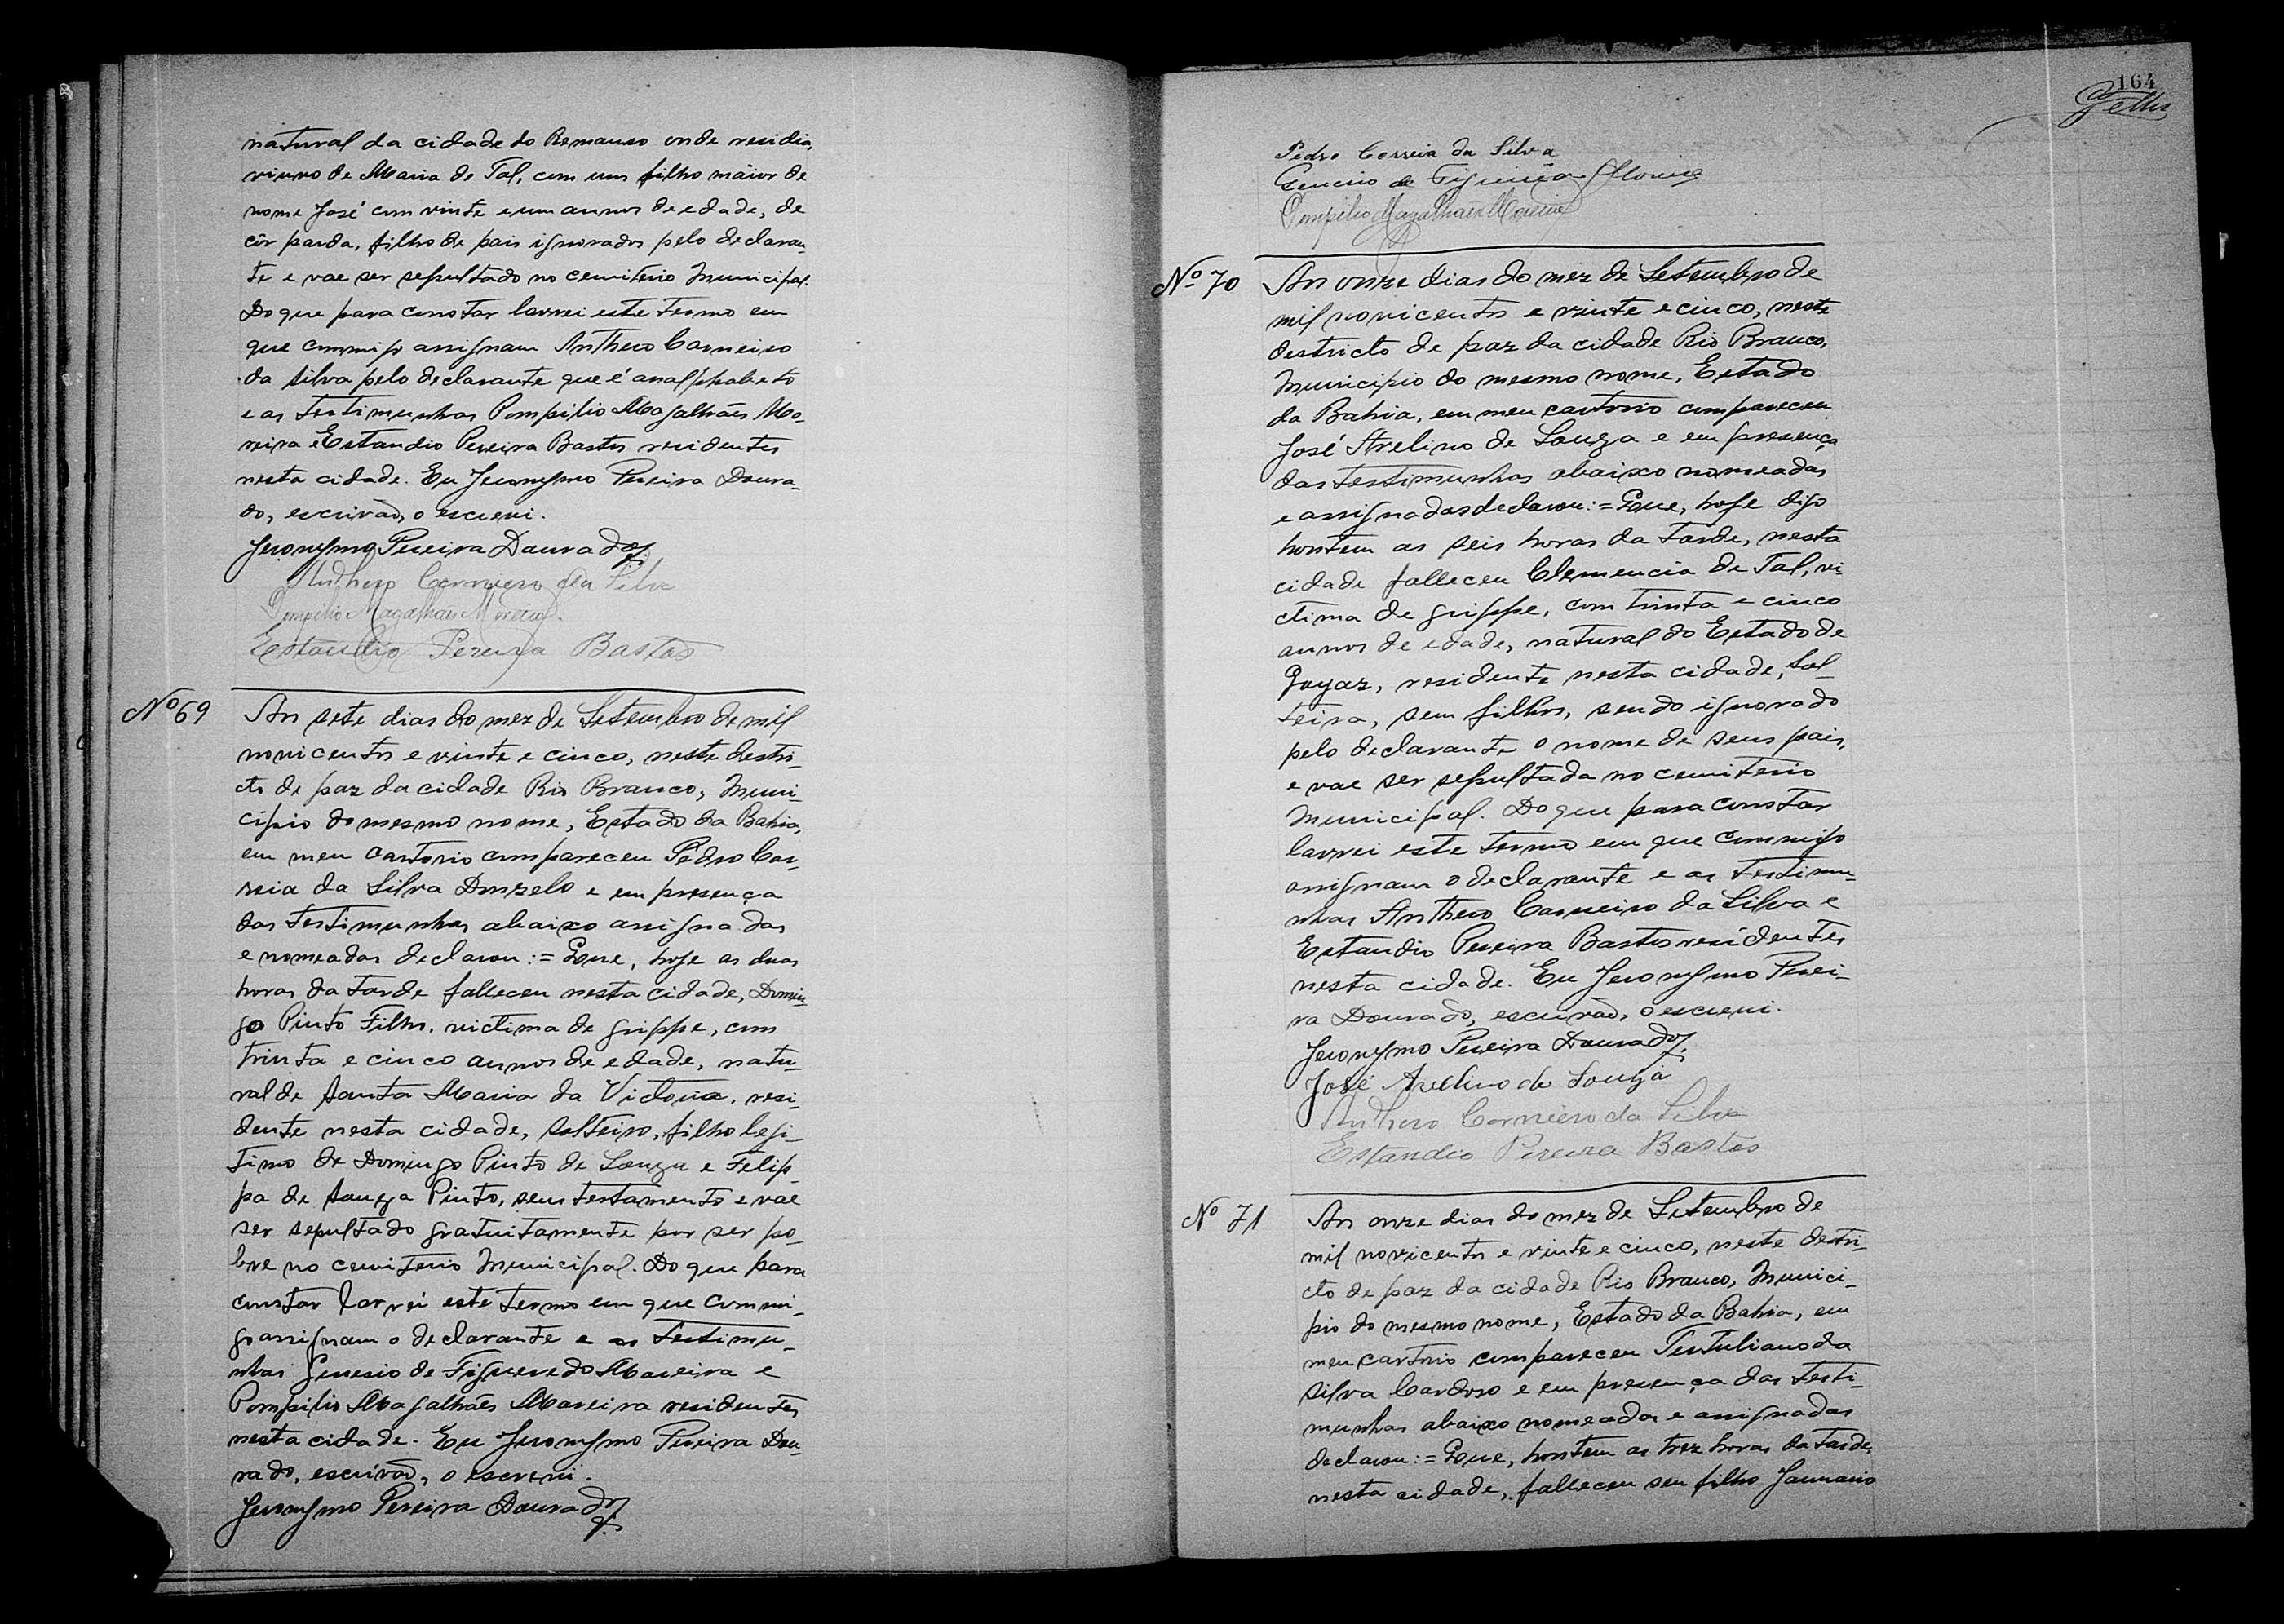 natural da cidade do Remanso onde residia,
viuvo de Maria de Tal, com um filho maior de
nome José com vinte e um annos de edade, de
côr parda, filho de pais ignorados pelo declaran-
te e vae ser sepultado no cemiterio Municipal.
Do que para constar lavrei este termo em
que commigo assignam Anthero Carneiro
da Silva pelo declarante que é analphabeto
e as testimunhas Pompilio Magalhães Mo-
reira e Estandio Pereira Bastos residentes
nesta cidade. Eu Jeronymo Pereira Doura-
do, escrivão, o escrevi.
Jeronymo Pereira Dourado
Anthero Carneiro da Silva
Pompilio Magalhães Moreira.
Estandio Pereira Bastos
Nº 69 Aos sete dias do mez de Setembro de mil
novicentos e vinte e cinco, neste destri-
cto de paz da cidade Rio Branco, Muni-
cipio do mesmo nome, Estado da Bahia,
em meu Cartorio compareceu Pedro Cor-
reia da Silva Donzelo e em presença
das testimunhas abaixo assignadas
e nomeadas declarou := Que, hoje as duas
horas da tarde falleceu nesta cidade, Domin-
go Pinto Filho, victima de grippe, com
trinta e cinco annos de edade, natu-
ral de Santa Maria da Victoria, resi-
dente nesta cidade, solteiro, filho legi-
timo de Domingo Pinto de Souza e Felip-
pa de Souza Pinto, sem testamento e vae
ser sepultado gratuitamente por ser po-
bre no cemiterio Municipal. Do que para
constar lavrei este termo em que commi-
go assignam o declarante e as testimu-
nhas Genesio de Figueredo Moreira e
Pompilio Magalhães Moreira residentes
nesta cidade. Eu Jeronymo Pereira Dou-
rado, escrivão, o escrevi.
Jeronymo Pereira Dourado
164
Pedro Correia da Silva
Genesio de Moreira
Pompilio Magalhães Moreira
Nº 70 Aos onze dias do mez de Setembro de
mil novicentos e vinte e cinco, neste
destricto de paz da cidade Rio Branco,
Municipio do mesmo nome, Estado
da Bahia, em meu cartorio compareceu
José Avelino de Souza e em presença
das testimunhas abaixo nomeadas
e assignadas declarou := Que, hoje digo
hontem as seis horas da tarde, nesta
cidade falleceu Clemencia de Tal, vi-
ctima de grippe, com trinta e cinco
annos de edade, natural do Estado de
Goyaz, residente nesta cidade, Sol-
teira, sem filhos, sendo ignorado
pelo declarante o nome de seus pais,
e vae ser sepultada no cemiterio
Municipal. Do que para constar
lavrei este termo em que commigo
assignam o declarante e as testimu-
nhas Anthero Carneiro da Silva e
Estandio Pereira Bastos residentes
nesta cidade. Eu Jeronymo Perei-
ra Dourado, escrivão, o escrevi.
Jeronymo Pereira Dourado
José Avelino de Souza
Anthero Carneiro da Silva
Estandio Pereira Bastos
Nº 71 Aos onze dias do mez de Setembro de
mil novicentos e vinte e cinco, neste destri-
cto de paz da cidade Rio Branco, Munici-
pio do mesmo nome, Estado da Bahia, em
meu cartorio compareceu Tertuliano da
Silva Cardoso e em presença das testi-
munhas abaixo nomeadas e assignadas
declarou := Que, hontem as trez horas da tarde,
nesta cidade, falleceu seu filho Januario